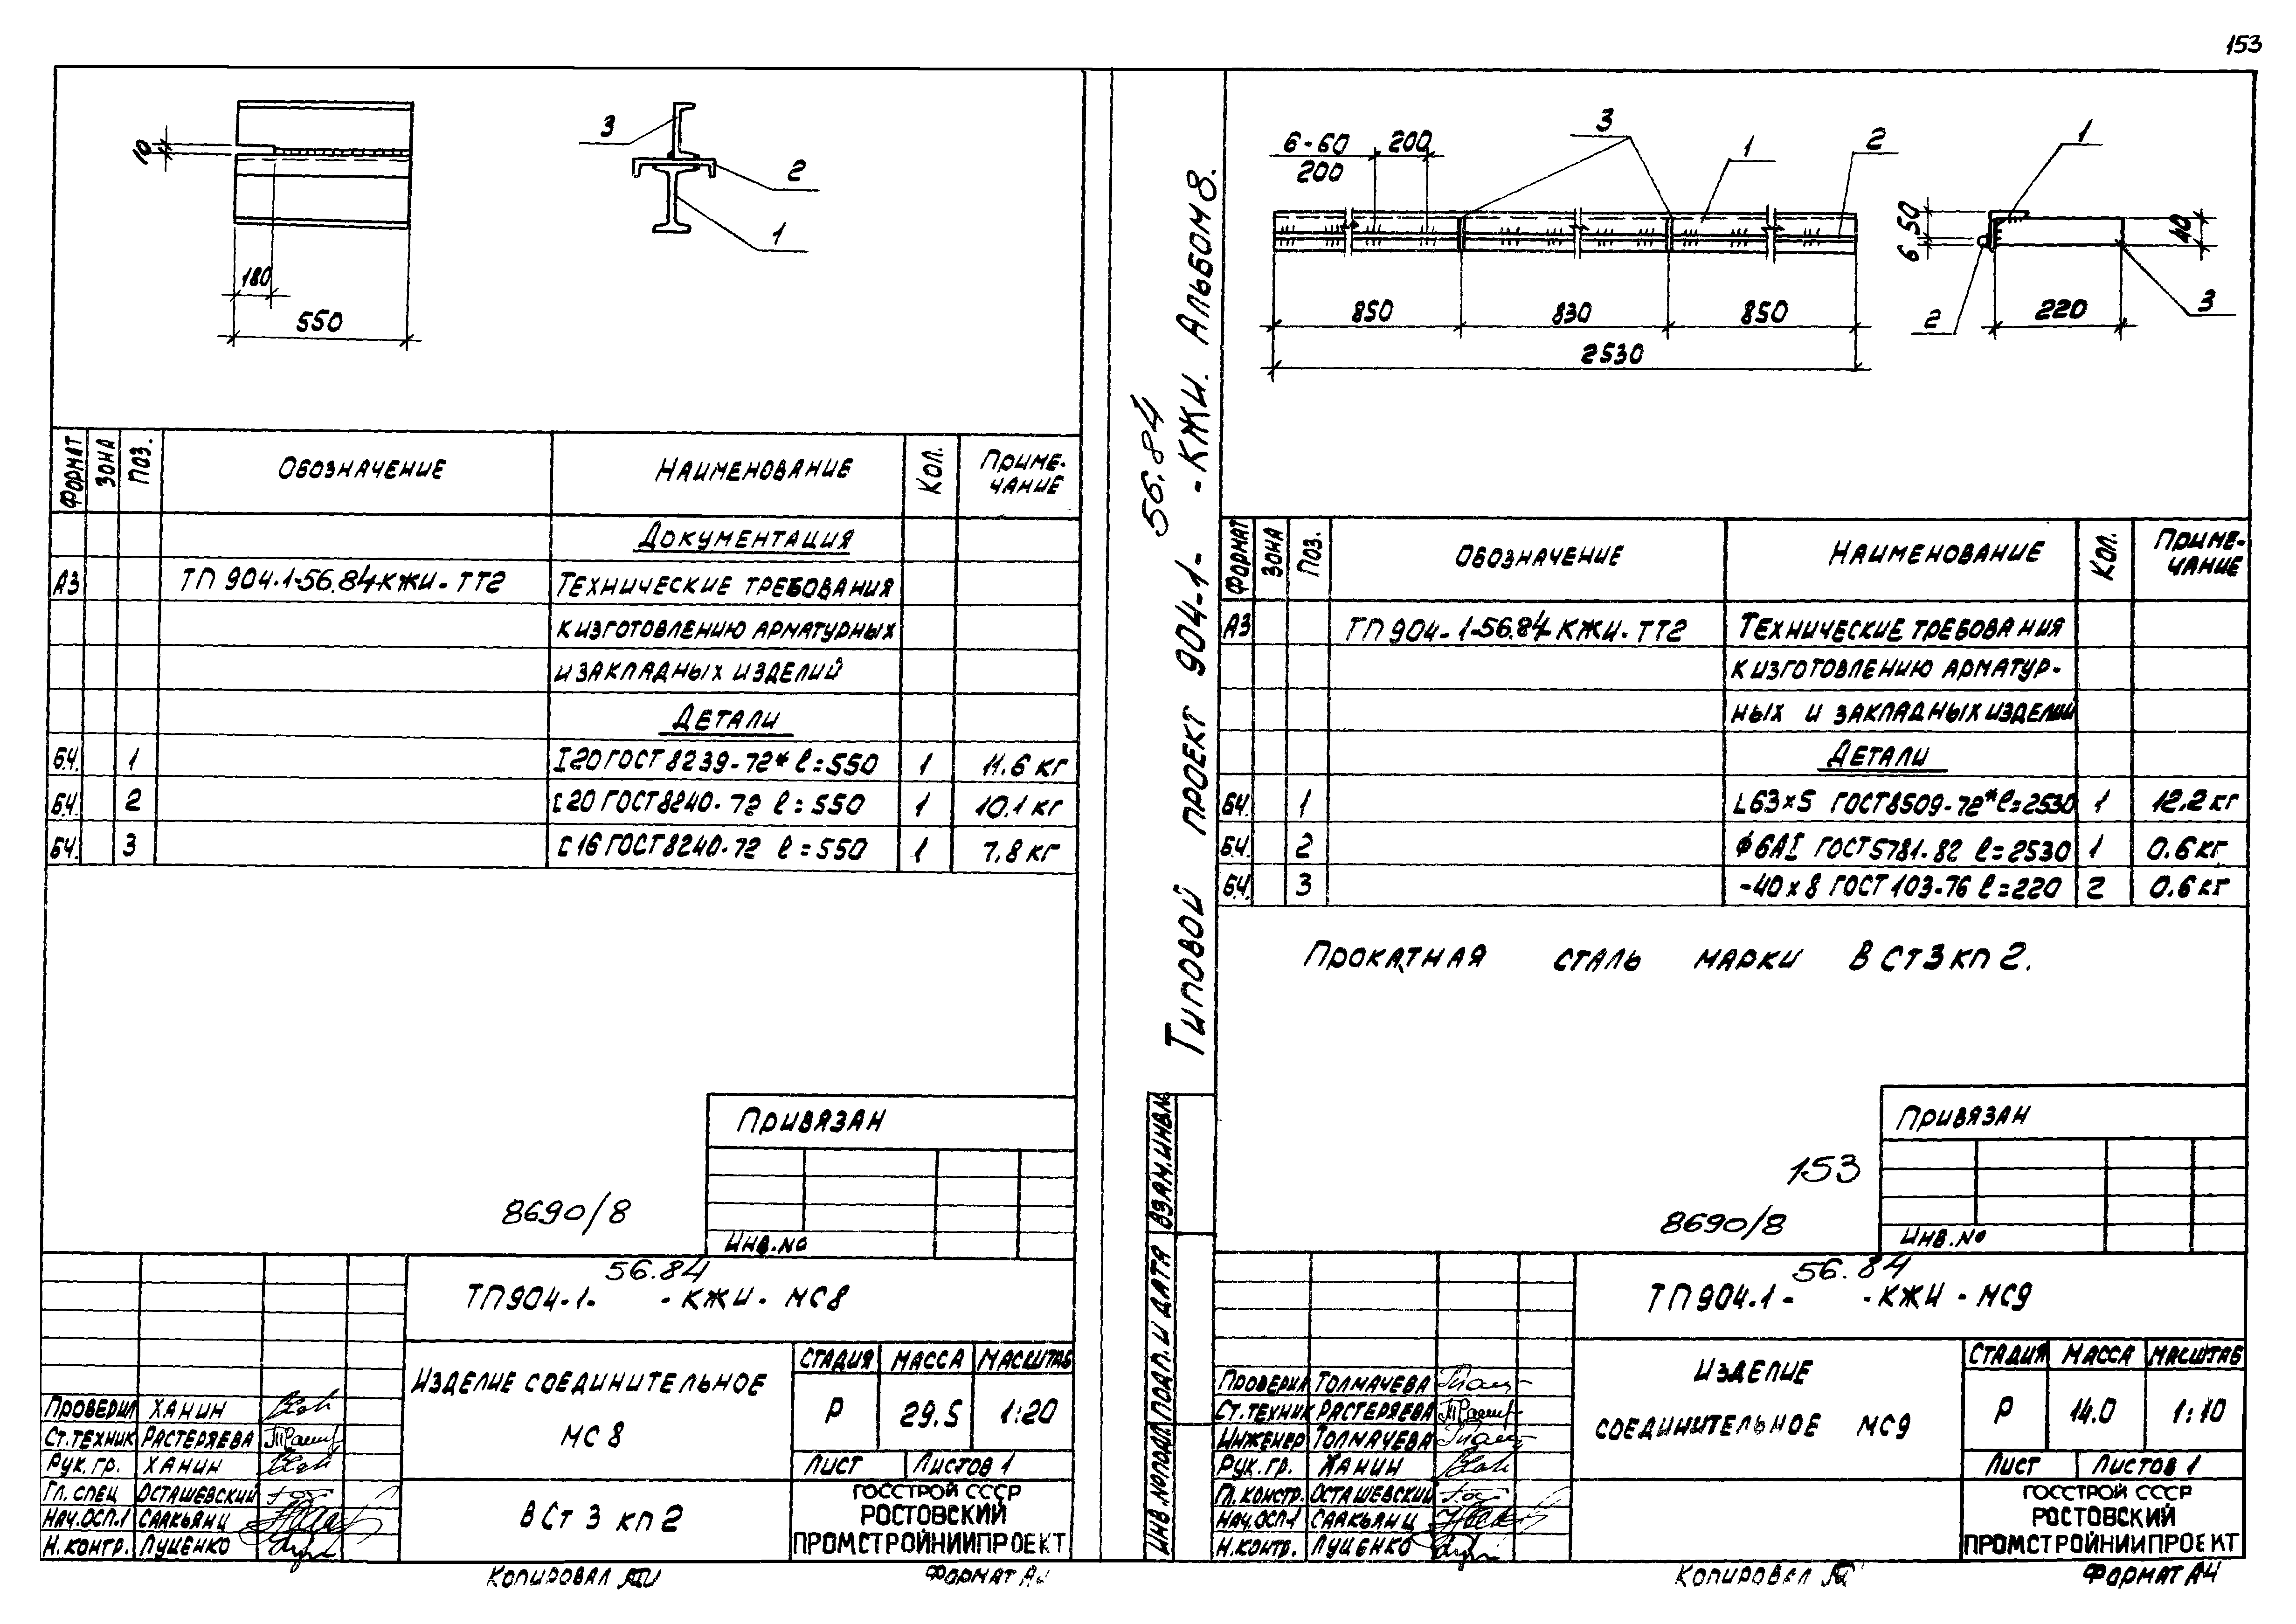 153
10
180
550
3
2
1
ФОРМАТ ЗОНА ПОЗ. ОБОЗНАЧЕНИЕ НАИМЕНОВАНИЕ КОЛ. ПРИМЕ-
ЧАНИЕ
ДОКУМЕНТАЦИЯ
А3 ТП 904-1-56.84-КЖИ-ТТ2 ТЕХНИЧЕСКИЕ ТРЕБОВАНИЯ
К ИЗГОТОВЛЕНИЮ АРМАТУРНЫХ
И ЗАКЛАДНЫХ ИЗДЕЛИЙ
ДЕТАЛИ
БЧ. 1 I20 ГОСТ 8239-72* ℓ=550 1 11.6 КГ
БЧ. 2 [20 ГОСТ 8240-72 ℓ=550 1 10.1 КГ
БЧ. 3 [16 ГОСТ 8240-72 ℓ=550 1 7.8 КГ
ПРИВЯЗАН
ИНВ.№
8690/8
56.84
ТП904-1- -КЖИ-МС8
ИЗДЕЛИЕ СОЕДИНИТЕЛЬНОЕ
МС 8
СТАДИЯ МАССА МАСШТАБ
Р 29.5 1:20
ЛИСТ ЛИСТОВ 1
В Ст 3 кп 2
ГОССТРОЙ СССР
РОСТОВСКИЙ
ПРОМСТРОЙНИИПРОЕКТ
ПРОВЕРИЛ ХАНИН
СТ.ТЕХНИК РАСТЕРЯЕВА
РУК.ГР. ХАНИН
ГЛ.СПЕЦ ОСТАШЕВСКИЙ
НАЧ.ОСП-1 СААКЬЯНЦ
Н.КОНТР. ЛУЦЕНКО
КОПИРОВАЛ
ФОРМАТ А4
ТИПОВОЙ ПРОЕКТ 904-1- 56.84 -КЖИ. АЛЬБОМ 8.
ВЗАМ.ИНВ.№
ПОДП. И ДАТА
ИНВ.№ПОДЛ.
6-60
200
200
3
1
2
850
830
850
2530
1
50
6
40
220
2
3
ФОРМАТ ЗОНА ПОЗ. ОБОЗНАЧЕНИЕ НАИМЕНОВАНИЕ КОЛ. ПРИМЕ-
ЧАНИЕ
А3 ТП 904-1-56.84-КЖИ-ТТ2 ТЕХНИЧЕСКИЕ ТРЕБОВАНИЯ
К ИЗГОТОВЛЕНИЮ АРМАТУР-
НЫХ И ЗАКЛАДНЫХ ИЗДЕЛИЙ
ДЕТАЛИ
БЧ. 1 L63×5 ГОСТ 8509-72* ℓ=2530 1 12.2 КГ
БЧ. 2 ф6АI ГОСТ 5781-82 ℓ=2530 1 0.6 КГ
БЧ. 3 -40×8 ГОСТ 103-76 ℓ=220 2 0.6 КГ
ПРОКАТНАЯ СТАЛЬ МАРКИ В СТ3 КП 2.
ПРИВЯЗАН
ИНВ.№
153
8690/8
56.84
ТП904-1- -КЖИ-МС9
ИЗДЕЛИЕ
СОЕДИНИТЕЛЬНОЕ МС9
СТАДИЯ МАССА МАСШТАБ
Р 14.0 1:10
ЛИСТ ЛИСТОВ 1
ГОССТРОЙ СССР
РОСТОВСКИЙ
ПРОМСТРОЙНИИПРОЕКТ
ПРОВЕРИЛ ТОЛМАЧЕВА
СТ.ТЕХНИК РАСТЕРЯЕВА
ИНЖЕНЕР ТОЛМАЧЕВА
РУК.ГР. ХАНИН
ГЛ.КОНСТР. ОСТАШЕВСКИЙ
НАЧ.ОСП-1 СААКЬЯНЦ
Н.КОНТР. ЛУЦЕНКО
КОПИРОВАЛ
ФОРМАТ А4